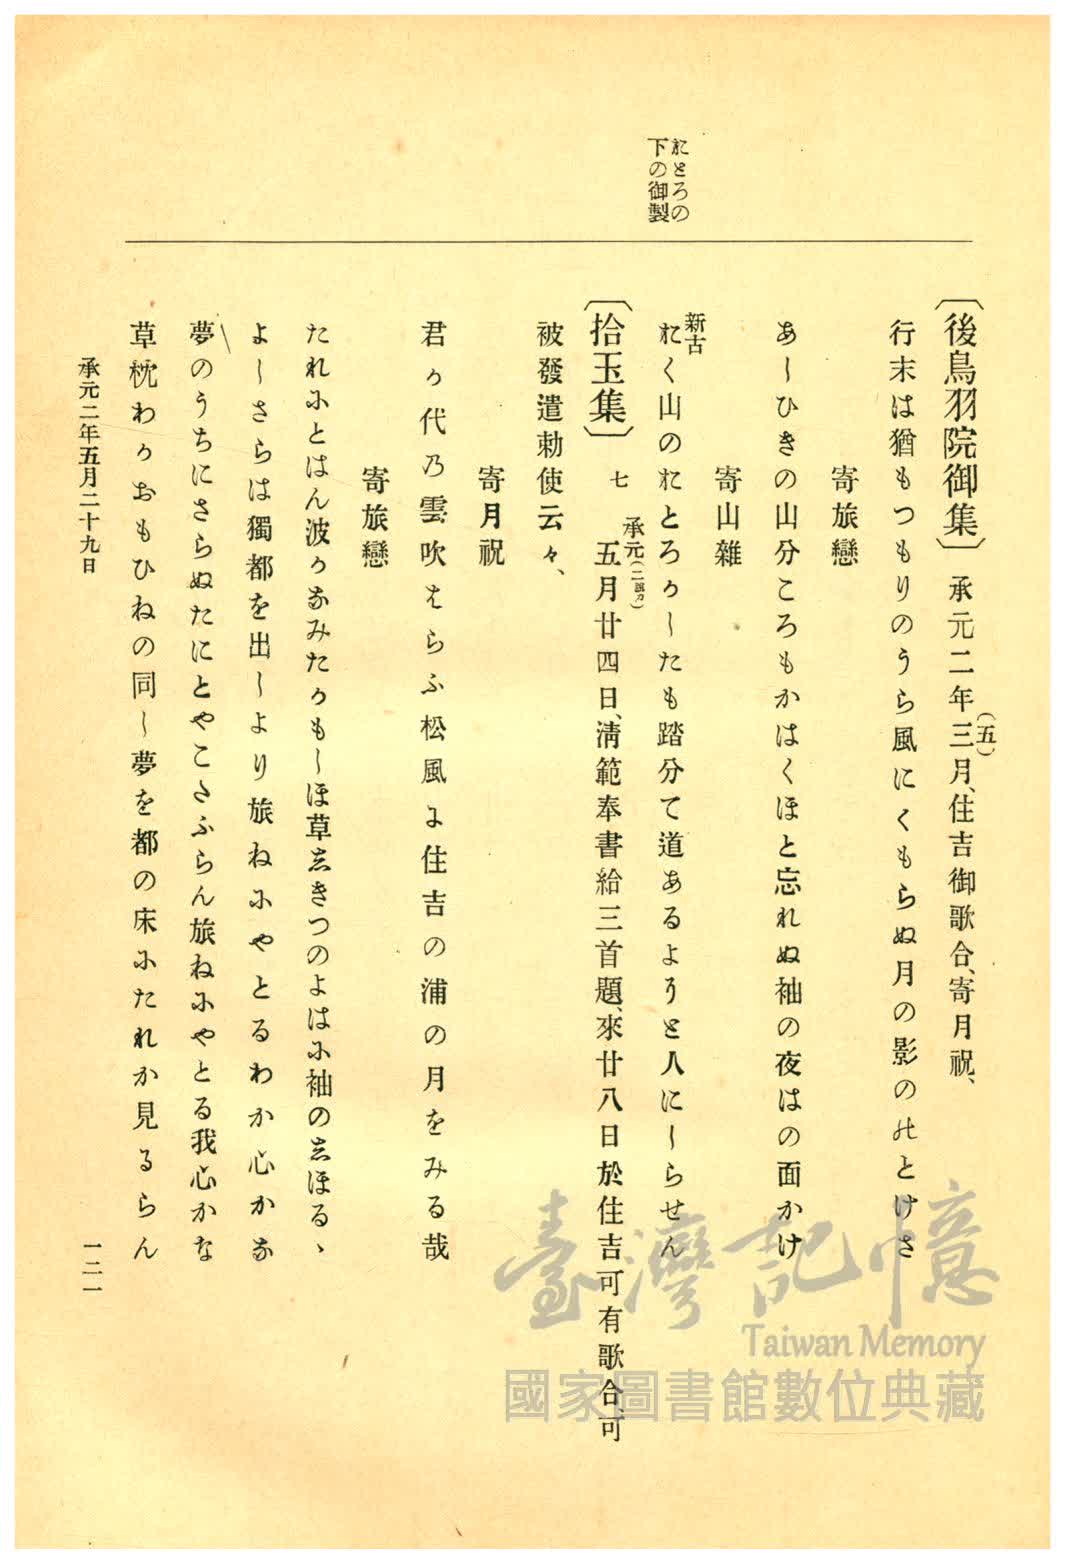 おとろの
下の御製
〔後鳥羽院御集〕承元二年三(五)月、住吉御歌合、寄月祝、
行末は猶もつもりのうら風にくもらぬ月の影ののとけさ
寄旅戀
あしひきの山分ころもかはくほと忘れぬ袖の夜はの面かけ
寄山雜
新古
おく山のおとろかしたも踏分て道あるようと人にしらせん
〔拾玉集〕七 承元(二脱カ)五月廿四日、淸範奉書給三首題、來廿八日於住吉可有歌合、可
被發遣勅使云々、
寄月祝
君か代乃雲吹はらふ松風に住吉の浦の月をみる哉
寄旅戀
たれにとはん波かなみたかもしほ草しきつのよはに袖のしほるゝ
よしさらは獨都を出しより旅ねにやとるわか心かな
夢のうちにさらぬたにとやこさふらん旅ねにやとる我心かな
草枕わかおもひねの同し夢を都の床にたれか見るらん
承元二年五月二十九日
一二一
臺灣記憶
Taiwan Memory
國家圖書館數位典藏